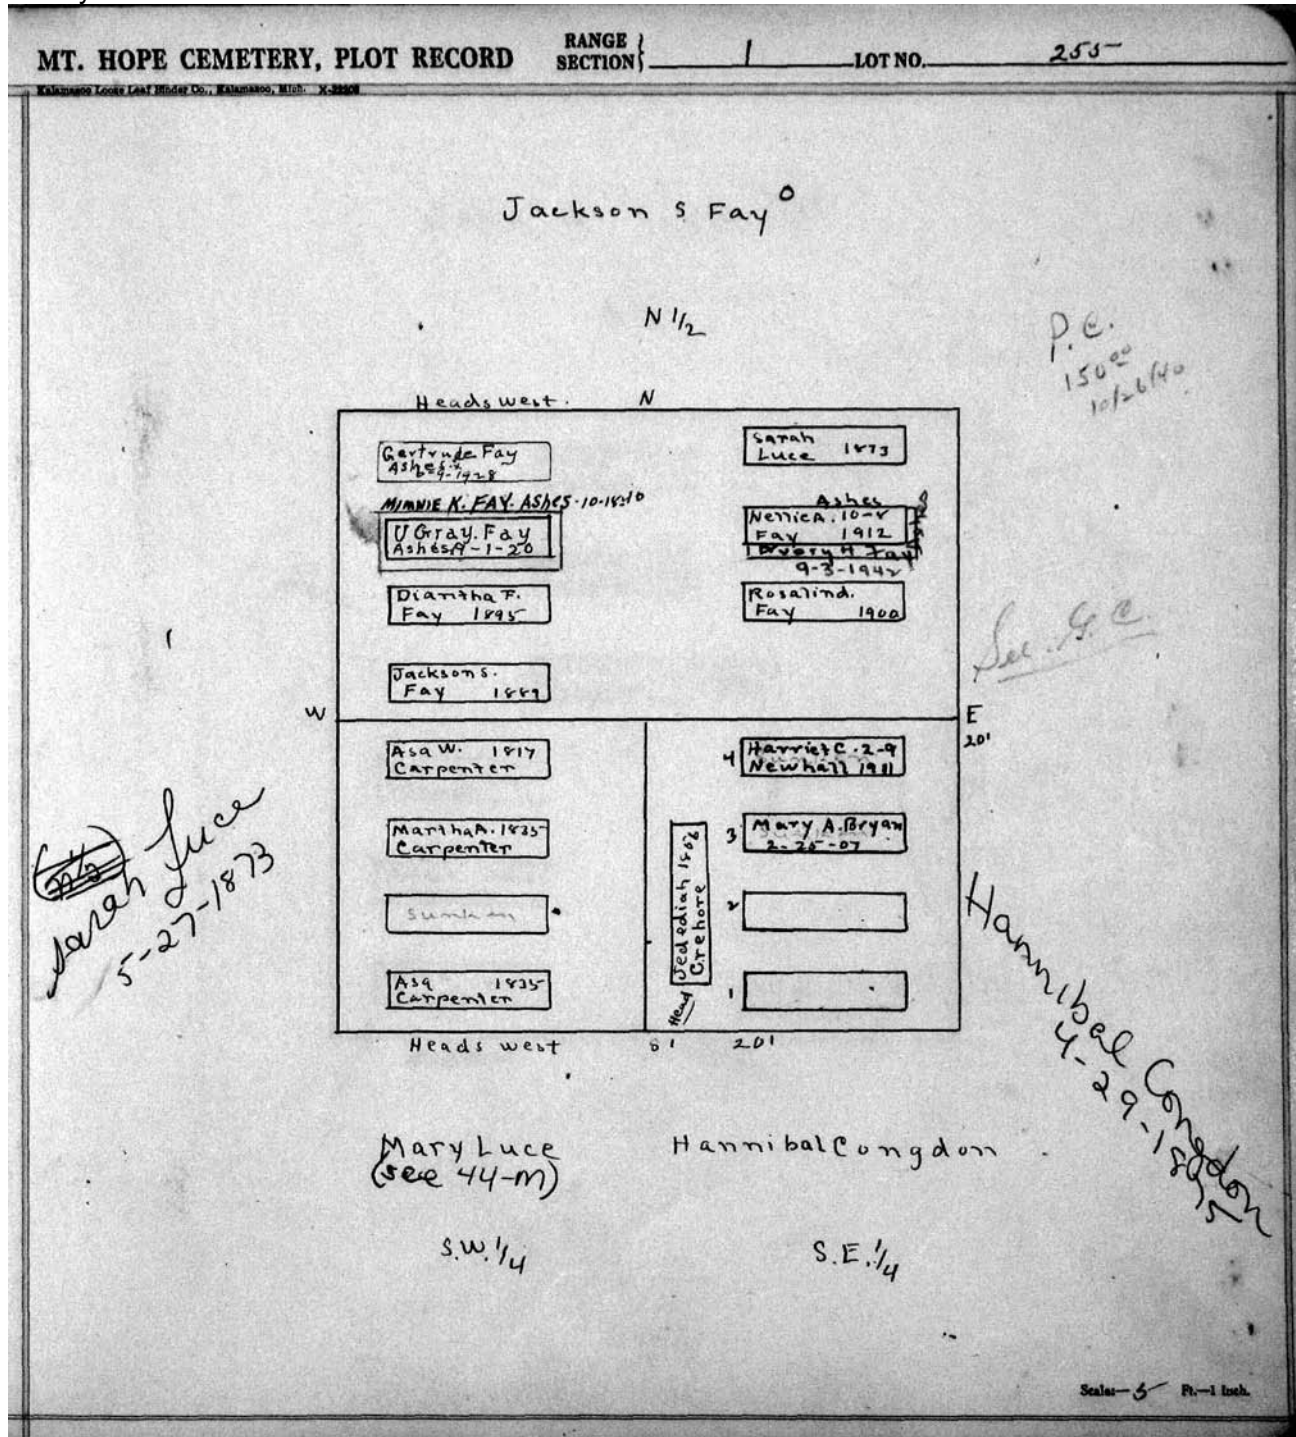 MT. HOPE CEMETERY, PLOT RECORD RANGE SECTION 1 LOT NO. 255
Kalamazoo Loose Leaf Binder Co., Kalamazoo, Mich.
Jackson S Fay
N 1/2
P.C.
150 00
10/26/40
Heads west. N
Gertrude Fay
Ashes
MINNIE K. FAY. Ashes
U Gray. Fay
Ashes 9-1-20
Diantha F.
Fay 1895
Jackson S.
Fay 1889
Sarah
Luce 1873
Ashes
Nellie A. 10-8
Fay 1912
Avery H. Fay
9-3-1942
Rosalind.
Fay 1900
See. G. C.
W
E
20'
Asa W. 1817
Carpenter
Martha A. 1835
Carpenter
Sunk in
Asa 1835
Carpenter
Jedediah
Crehore
Head
4 Harriet C. 2-9
Newhall 1911
3 Mary A. Bryan
2-25-07
2
1
Heads west S 1 201
Sarah Luce
5-27-1873
Hannibal Congdon
4-29-1895
Mary Luce
(see 44-M)
Hannibal Congdon
S.W. 1/4
S.E. 1/4
Scale—5 Ft.—1 Inch.